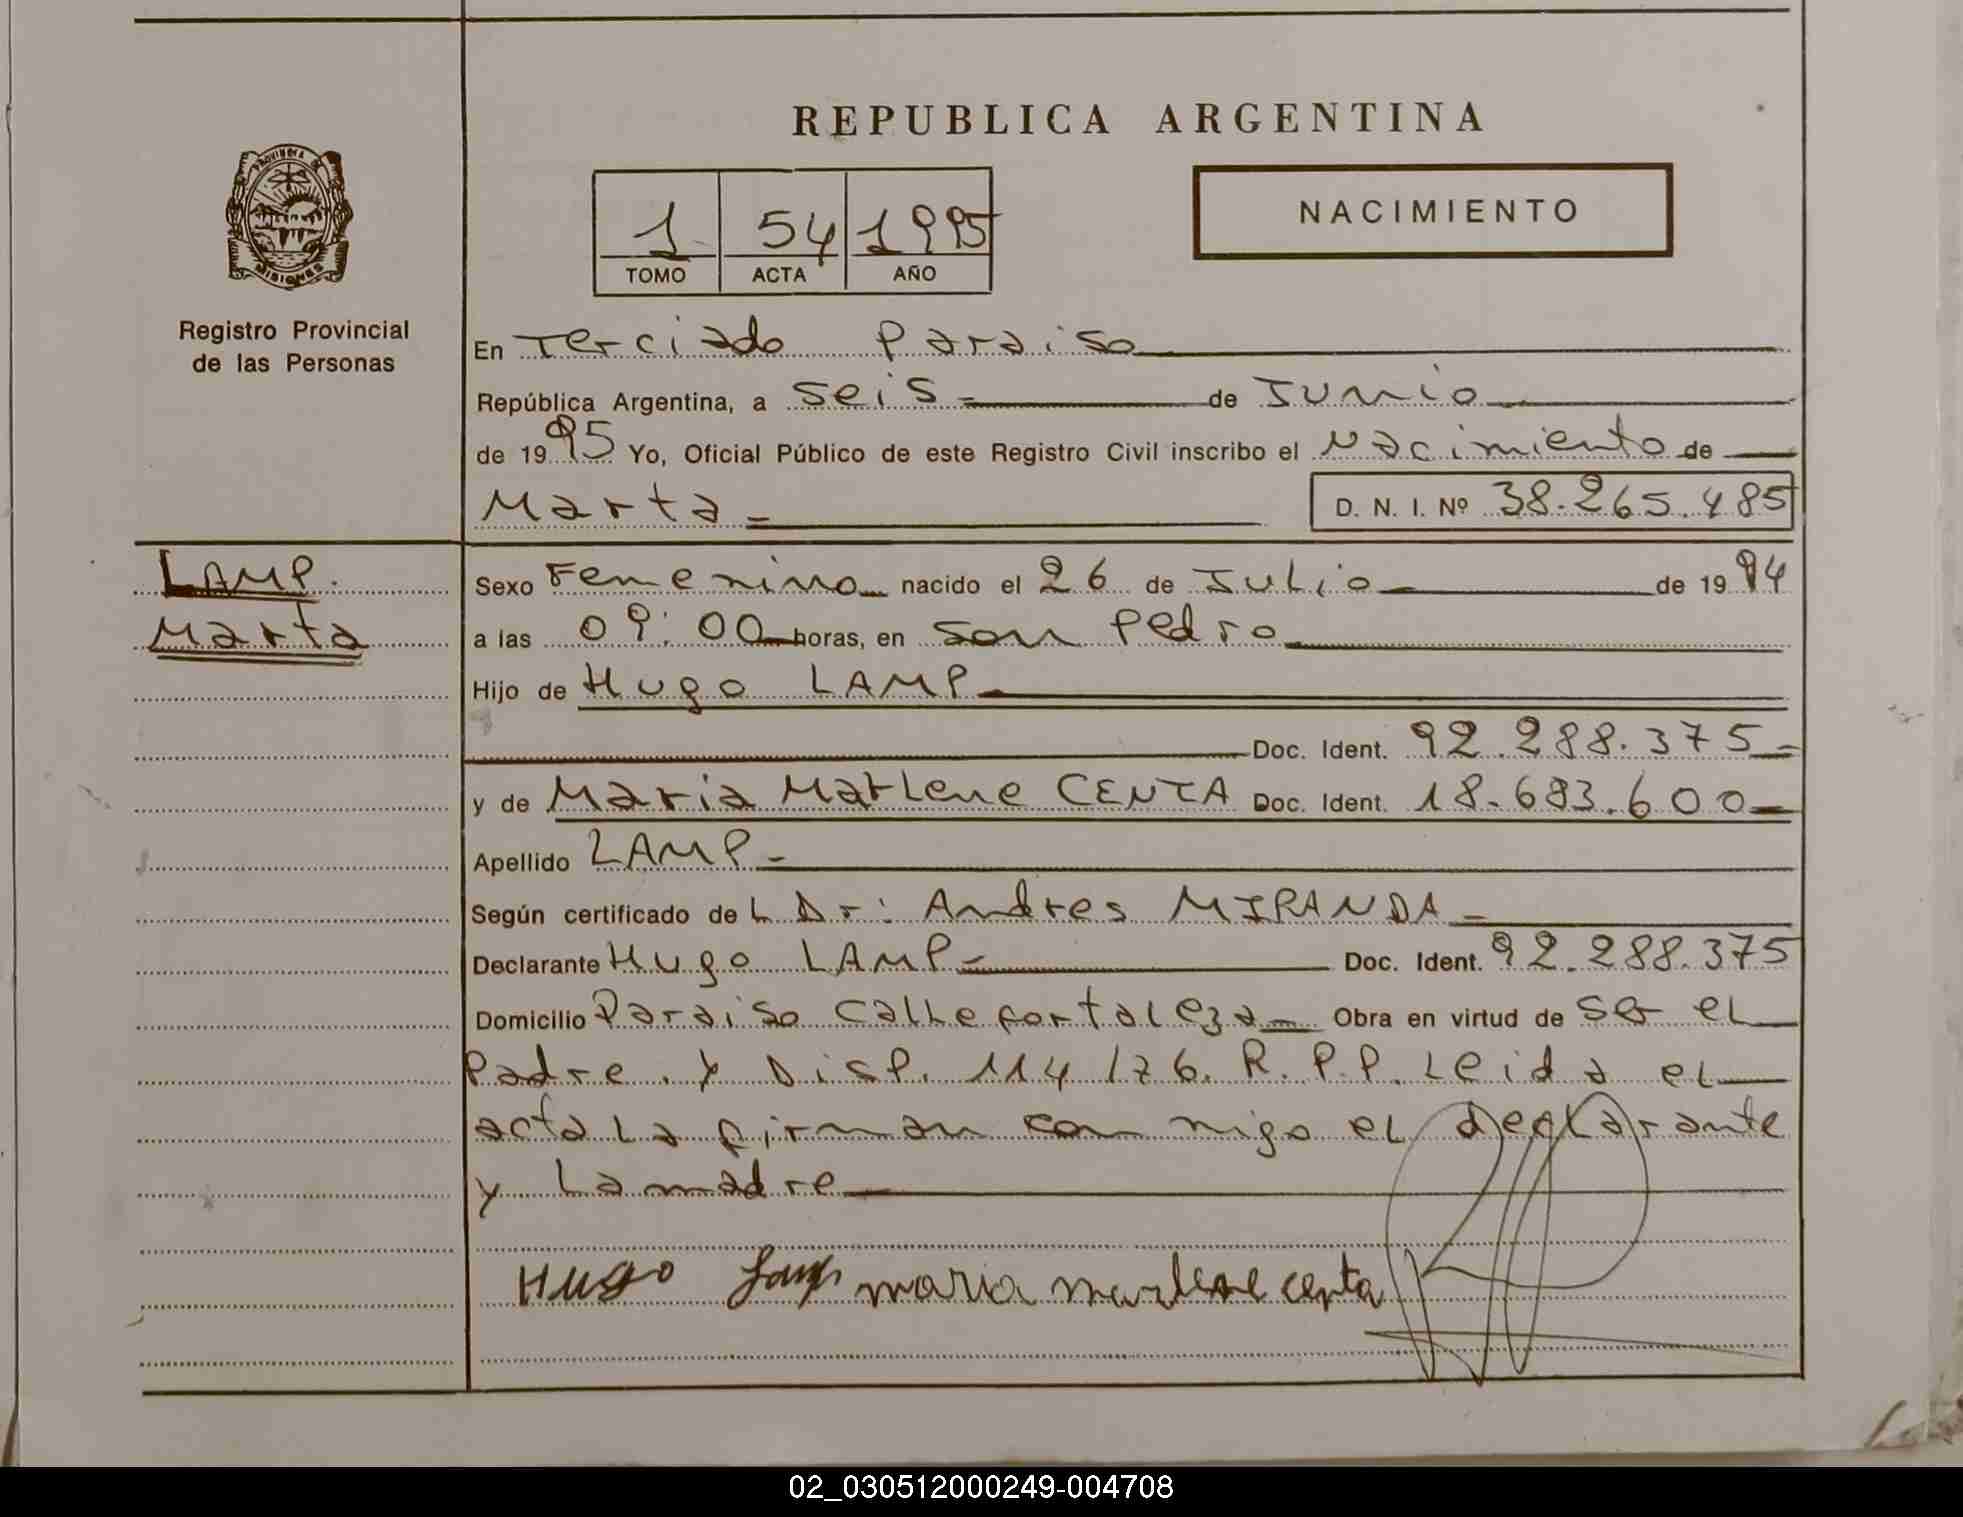 REPUBLICA ARGENTINA
PROVINCIA DE
MISIONES
Registro Provincial
de las Personas
1 54 1995
TOMO ACTA AÑO
NACIMIENTO
En Terciado Paraiso
República Argentina, a seis de Junio
de 1995 Yo, Oficial Público de este Registro Civil inscribo el Nacimiento de
Marta D. N. I. Nº 38.265.485
LAMP.
Marta
Sexo Femenino nacido el 26 de Julio de 1994
a las 09:00 horas, en San Pedro
Hijo de Hugo LAMP
Doc. Ident. 92.288.375
y de Maria Marlene CENTA Doc. Ident. 18.683.600
Apellido LAMP
Según certificado de L Dr: Andres MIRANDA
Declarante Hugo LAMP Doc. Ident. 92.288.375
Domicilio Paraiso Calle fortaleza Obra en virtud de ser el
Padre. y Disp. 114/76. R.P.P. Leida el
acta la firman con migo el declarante
y La madre
Hugo Lamp maria marlene centa
02_030512000249-004708